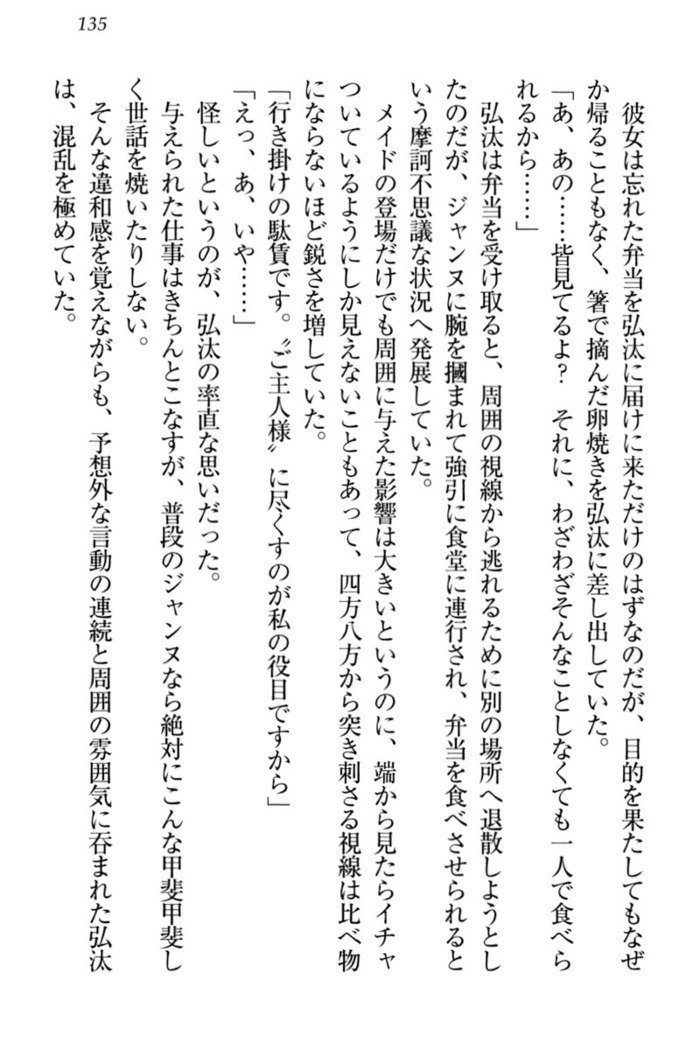 135
　彼女は忘れた弁当を弘汰に届けに来ただけのはずなのだが、目的を果たしてもなぜ
か帰ることもなく、箸で摘んだ卵焼きを弘汰に差し出していた。
「あ、あの……皆見てるよ？　それに、わざわざそんなことしなくても一人で食べら
れるから……」
　弘汰は弁当を受け取ると、周囲の視線から逃れるために別の場所へ退散しようとし
たのだが、ジャンヌに腕を摑まれて強引に食堂に連行され、弁当を食べさせられると
いう摩訶不思議な状況へ発展していた。
　メイドの登場だけでも周囲に与えた影響は大きいというのに、端から見たらイチャ
ついているようにしか見えないこともあって、四方八方から突き刺さる視線は比べ物
にならないほど鋭さを増していた。
「行き掛けの駄賃です。〝ご主人様〟に尽くすのが私の役目ですから」
「えっ、あ、いや……」
　怪しいというのが、弘汰の率直な思いだった。
　与えられた仕事はきちんとこなすが、普段のジャンヌなら絶対にこんな甲斐甲斐し
く世話を焼いたりしない。
　そんな違和感を覚えながらも、予想外な言動の連続と周囲の雰囲気に呑まれた弘汰
は、混乱を極めていた。